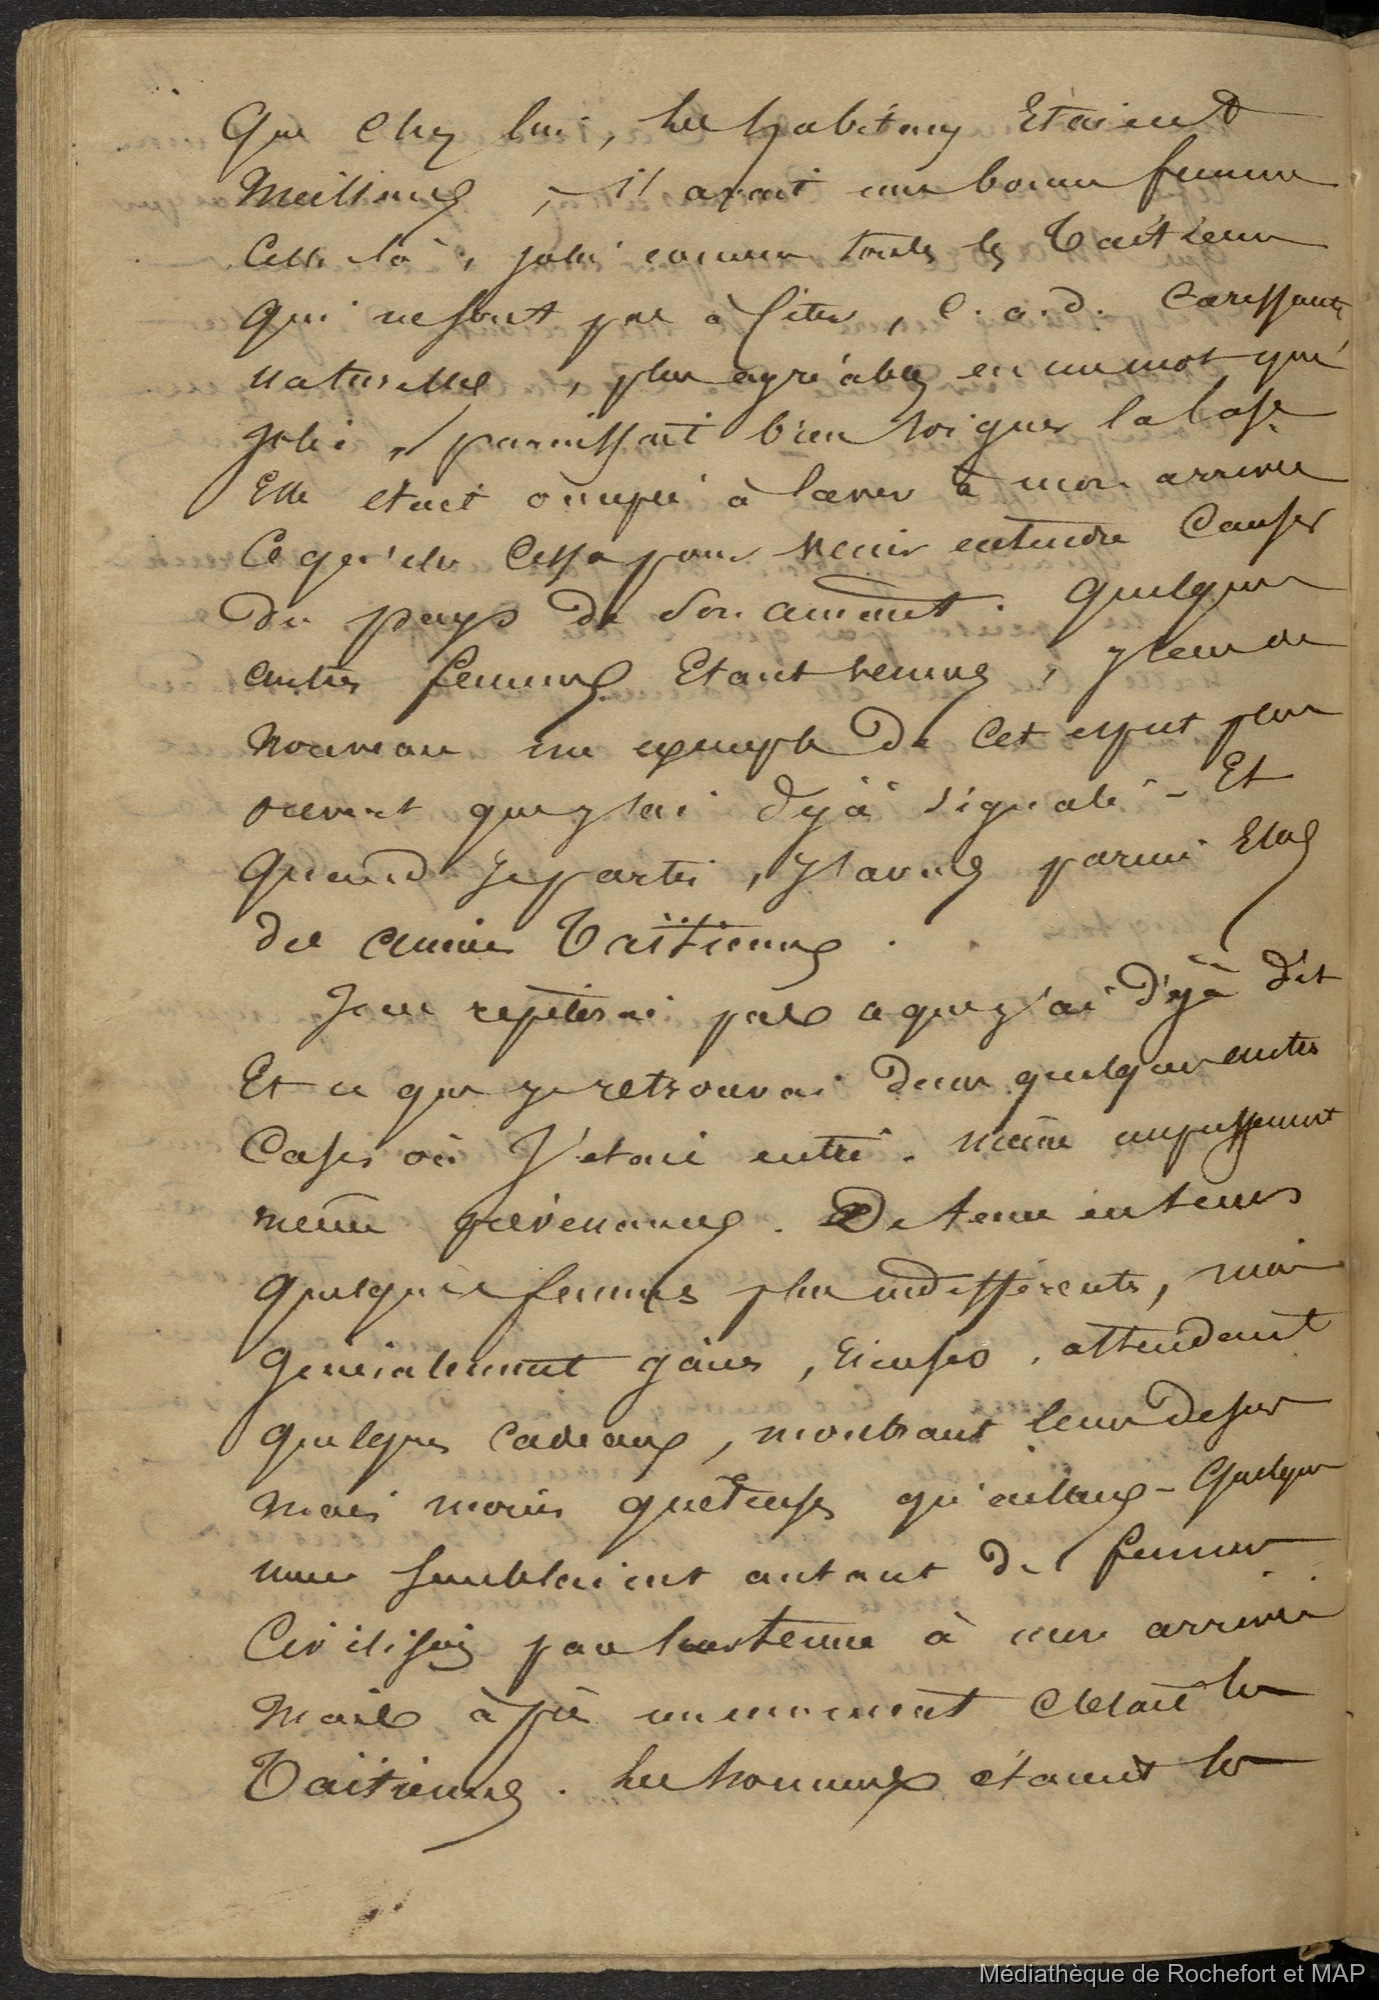 Que chez lui, les habitans Etaient
Meilleurs, il avait une bonne femme
Celle là, jolie comme toutes les Taïtienn
qui ne sont pas à citer, c. a. d. Caressante
naturelle, plus agréable en un mot que
jolie, paraissait bien soigner la case
Elle etait occupée à laver à mon arrivée
Ce qu'elle cessa pour venir entendre causer
du pays de son amant. Quelques
autres femmes Etant venues, j'eus de
nouveau un exemple de cet esprit plus
ouvert que j'ai déjà signalé - Et
Quand je partis, j'avais parmi Elles
des amies Taïtiennes.
Je ne repéterai pas ce que j'ai déjà dit
Et ce que je retrouvai dans quelques autres
Cases où J'etais entré. même empressement
même prévenances. De tems en tems
quelques femmes plus indifférentes, mais
généralement gaies, rieuses, attendant
quelques cadeaux, montrant leur desir
mais moins quêteuses qu'ailleurs - Quelques
unes semblaient autant de femmes
Civilisées par leur tenue à mon arrivée
mais après un moment c'était les
Taïtiennes. les hommes étaient les
Médiathèque de Rochefort et MAP